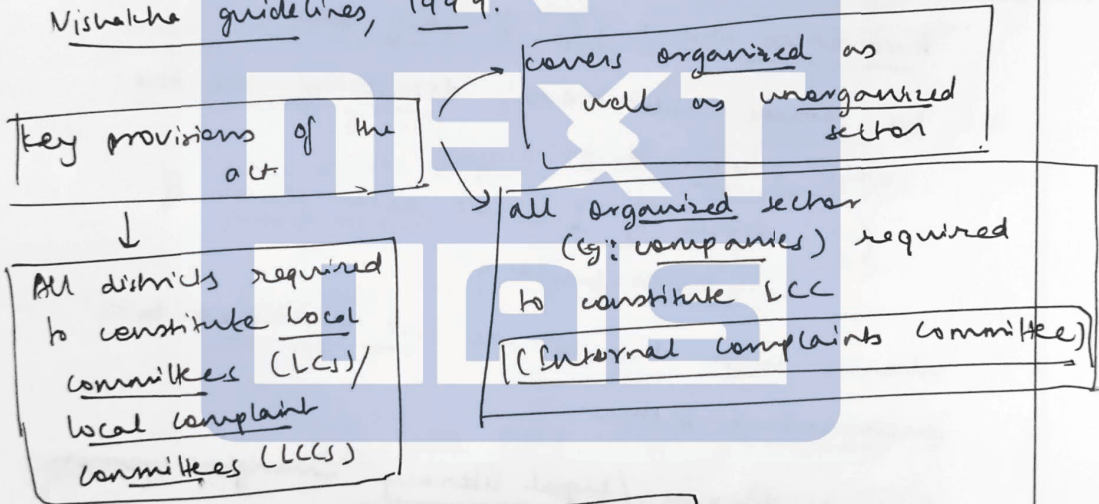 Vishakha guidelines, 1997.
key provisions of the
act
covers organized as
well as unorganized
sector
all organized sector
(eg: companies) required
to constitute ICC
(Internal complaints committee)
All districts required
to constitute local
committees (LCs)/
local complaint
committees (LCCs)
NEXT
IAS